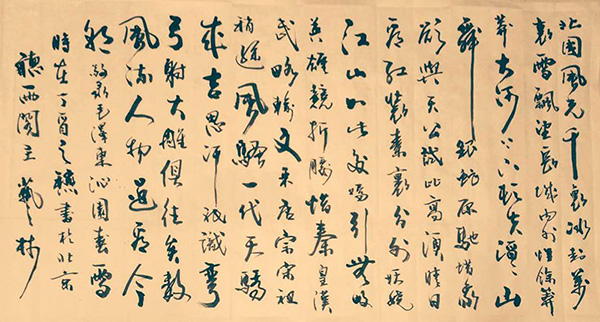 北國風光千里冰封萬
里雪飄望長城內外惟餘莽
莽大河上下頓失滔滔山
舞銀蛇原馳蜡象
欲與天公試比高須晴日
看紅裝素裹分外妖嬈
江山如此多嬌引無數
英雄競折腰惜秦皇漢
武略輸文采唐宗宋祖
稍遜風騷一代天驕
成吉思汗祇識彎
弓射大雕俱往矣數
風流人物還看今
朝敬录毛澤東沁園春雪
時在丁酉之秋書於北京
聽西閣主